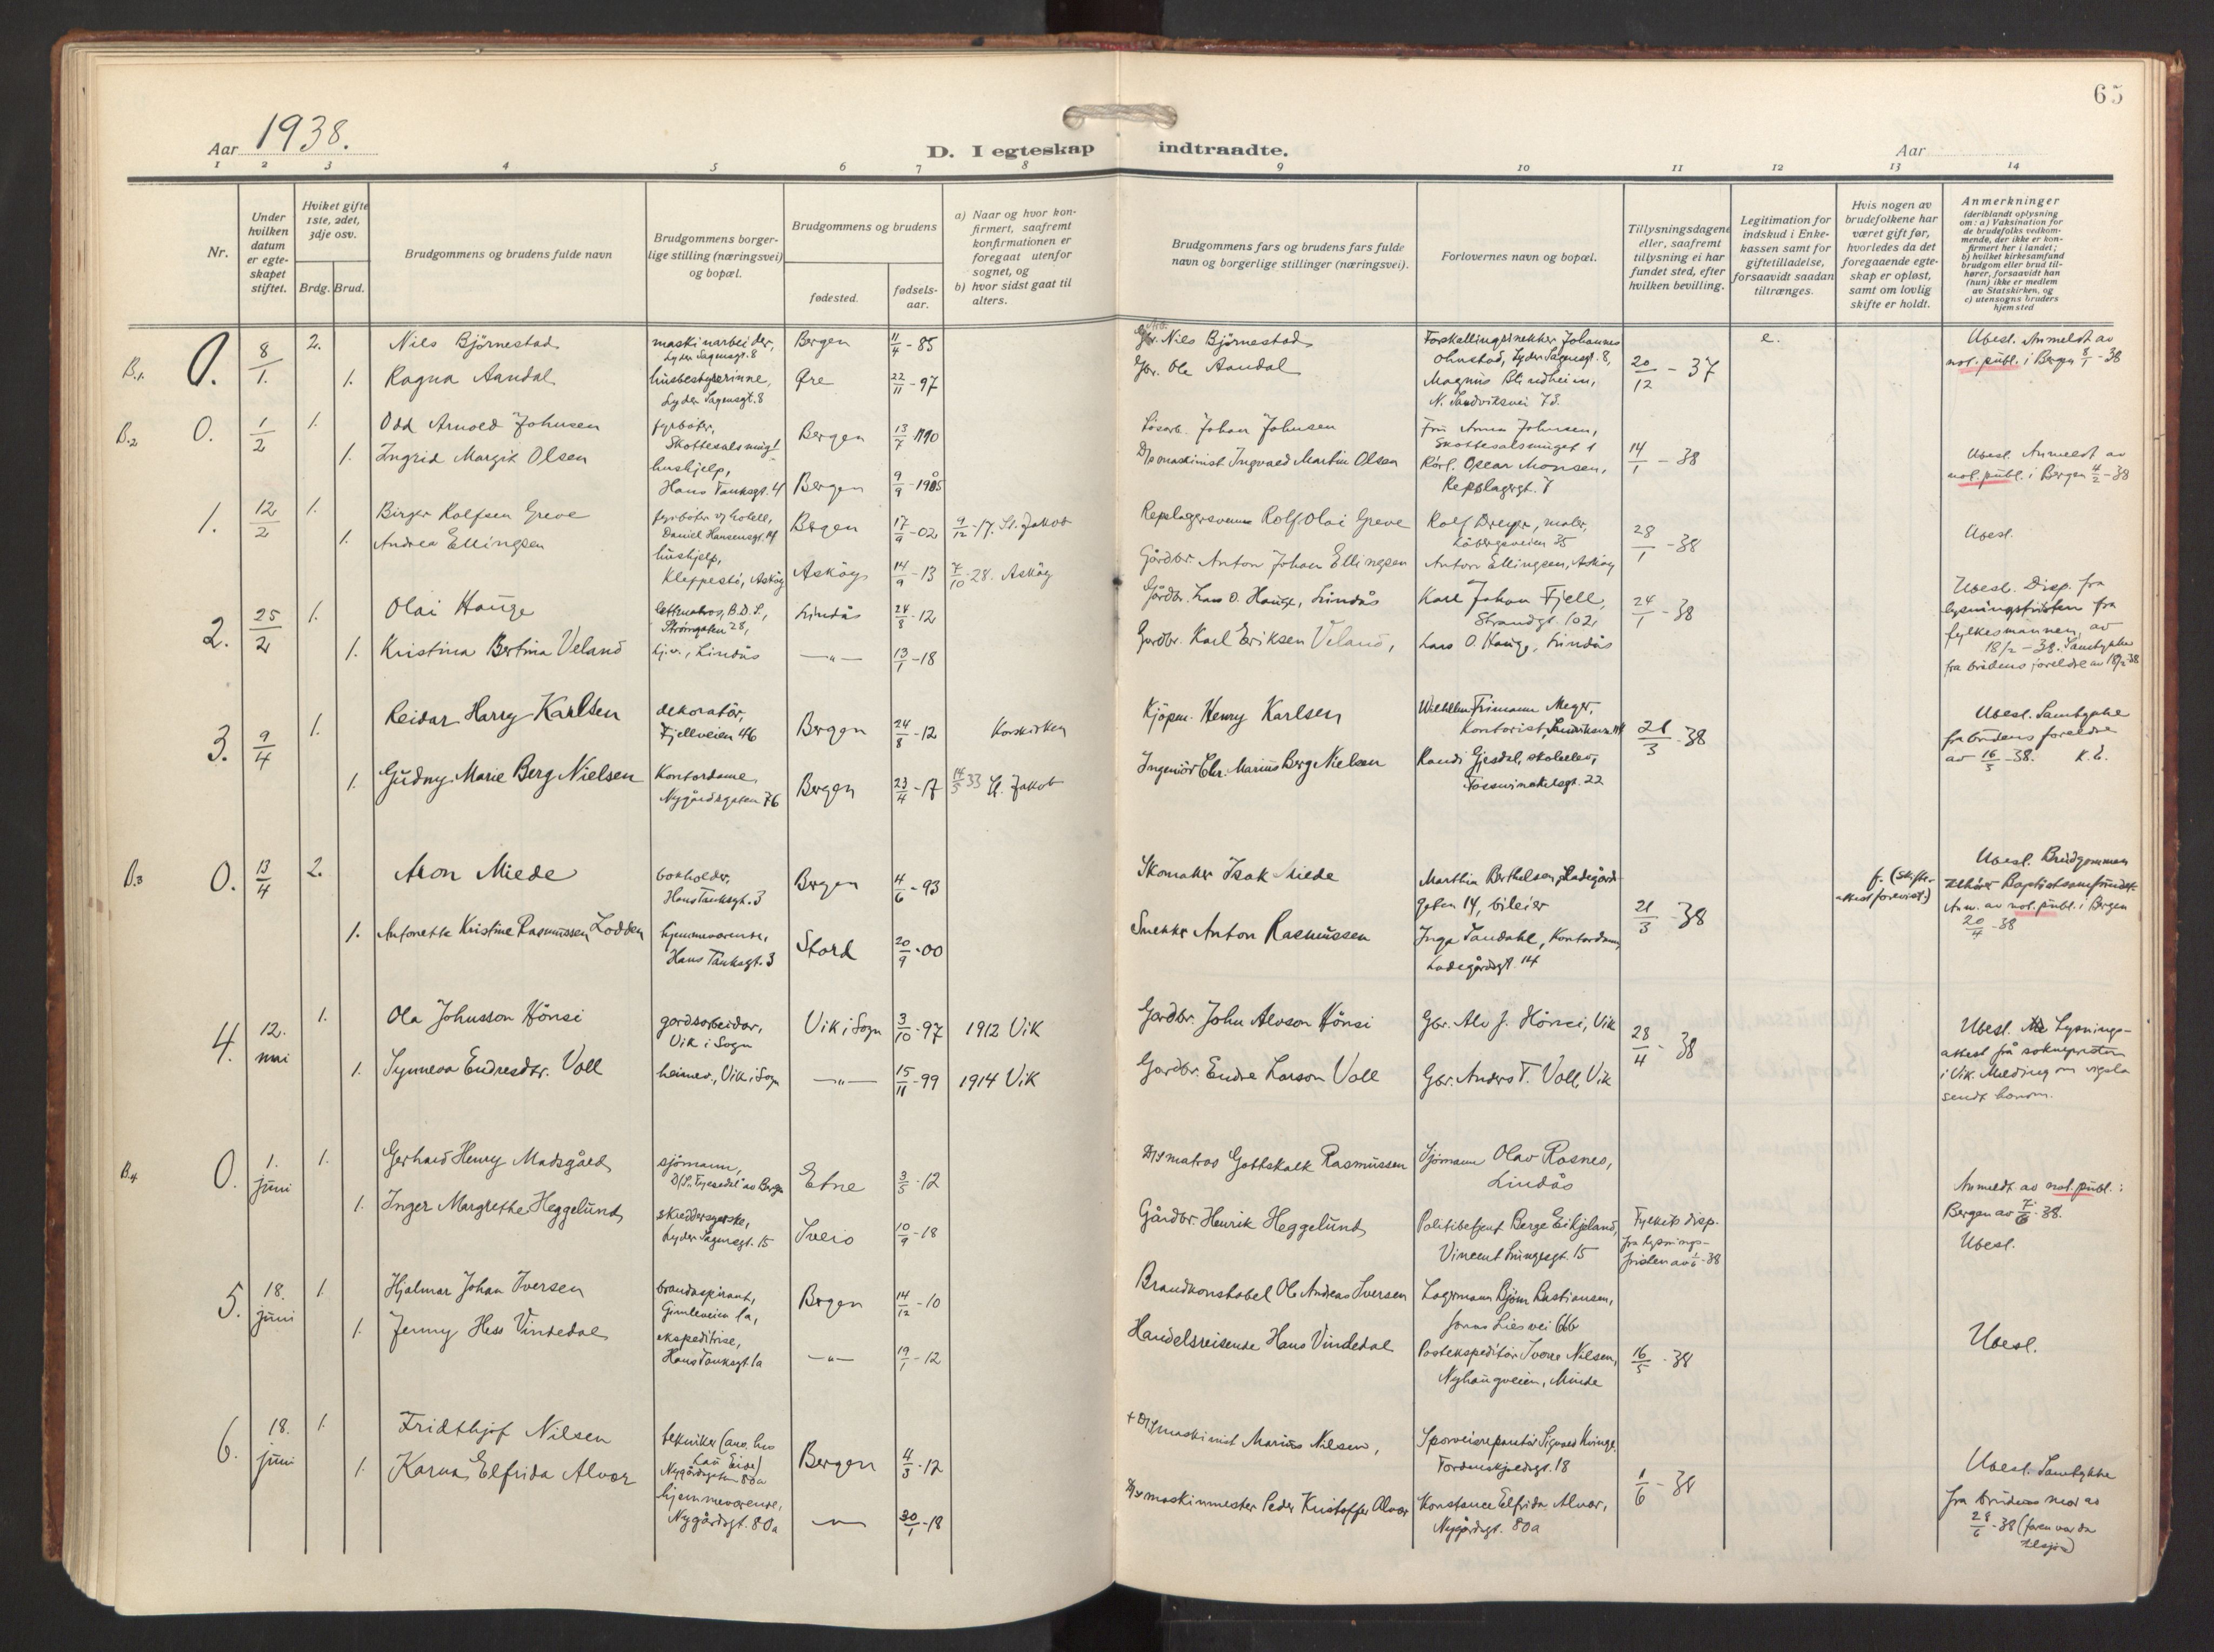 65
Aar 1938.
D. I egteskap indtraadte.
Aar
1 2 3 4 5 6 7 8 9 10 11 12 13 14
Nr.
Under hvilken datum er egteskapet stiftet.
Hvilket gifte 1ste, 2det, 3dje osv.
Brdg. Brud.
Brudgommens og brudens fulde navn
Brudgommens borgerlige stilling (næringsvei) og bopæl.
Brudgommens og brudens
fødested.
fødselsaar.
a) Naar og hvor konfirmert, saafremt konfirmationen er foregaat utenfor sognet, og
b) hvor sidst gaat til alters.
Brudgommens fars og brudens fars fulde navn og borgerlige stillinger (næringsvei).
Forlovernes navn og bopæl.
Tillysningsdagene eller, saafremt tillysning ei har fundet sted, efter hvilken bevilling.
Legitimation for indskud i Enkekassen samt for giftetilladelse, forsaavidt saadan tiltrænges.
Hvis nogen av brudefolkene har været gift før, hvorledes da det foregaaende egteskap er opløst, samt om lovlig skifte er holdt.
Anmerkninger
(deriblandt oplysning om: a) Vaksination for de brudefolks vedkommende, der ikke er konfirmert her i landet; b) hvilket kirkesamfund brudgom eller brud tilhører, forsaavidt han (hun) ikke er medlem av Statskirken, og c) utensogns bruders hjemsted
B.1. 0. 8/1. 2. Nils Bjørnestad maskinarbeider, Lyder Sagensgt. 8 Bergen 11/4-85 Nils Bjørnestad Johannes Ohnstad, Lyder Sagensgt. 8, 20/12-37 e. Ubesl. Anmeldt av
1. Ragna Aandal husbestyrerinne, Lyder Sagensgt. 8 Øre 22/11-97 Gbr. Ole Aandal Magnus Blindheim, N. Sandviksvei 73. not. publ. i Bergen 8/1-38
B.2 0. 1/2 1. Odd Arnold Johnsen fyrbøter, Bergen 13/7 1910 Løsarb. Johan Johnsen Fru Anna Johnsen, 14/1-38 Ubesl. Anmeldt av
1. Ingrid Margit Olsen hushjelp, Hans Tanksgt. 4 Bergen 9/9-1905 Ingvald Martin Olsen Oscar Monsen, Repslagergt. 7 not. publ. i Bergen 4/2-38
1. 12/2 1. Birger Rolfsen Greve fyrbøter v/hotell, Daniel Hansensgt. Bergen 17/9-02 9/12-17. St. Jakob Repslagersvenn Rolf Olai Greve Rolf Dreyer, maler, 28/1-38 Ubesl.
1. Andrea Ellingsen hushjelp, Kleppestø, Askøy Askøy 14/9-13 7/10-28. Askøy Gårdbr. Anton Johan Ellingsen Anton Ellingsen, Askøy
2. 25/2 1. Olai Hauge lettmatros, B.D.S., Strømgaten 28, Lindås 24/8-12 Gårdbr. Lars O. Hauge, Lindås Karl Johan Fjell, Strandgt. 102, 24/1-38 Ubesl. Disp. fra lysningsfristen fra fylkesmannen, av
1. Kristina Bertina Veland hj.v., Lindås —"— 13/1-18 Gardbr. Karl Eriksen Veland, Lars O. Hauge, Lindås 18/2-38. Samtykke fra brudens foreldre av 18/2-38
3. 9/4 1. Reidar Harry Karlsen dekoratør, Fjellveien 46 Bergen 24/8-12 Korskirken Kjøpm. Henry Karlsen Wilhelm Frimann Meyer, Kontorist, 21/3-38 Ubesl. Samtykke fra brudens foreldre
1. Gudny Marie Berg Nielsen Kontordame, Nygårdsgaten 76 Bergen 23/4-17 14/5 33 St. Jakob Ingeniør Chr. Marius Berg Nielsen Randi Gjesdal, skoleelev, Fosswinckelsgt. 22 av 16/3-38.
B.3 0. 13/4 2. Aron Miede bokholder, Hans Tanksgt. 3 Bergen 4/6-93 Skomaker Isak Miede Marthin Berthelsen, Ladegårdsgaten 14, bileier 21/3-38 f. (Skifteattest forevist.) Ubesl. Brudgommen tilhører Baptistsamfundet.
1. Antonette Kristine Rasmussen Lodden hjemmeværende, Hans Tanksgt. 3 Stord 20/9-00 Snekker Anton Rasmussen Inga Sandahl, Kontordame, Ladegårdsgt. 14 Anm. av not. publ. i Bergen 20/4-38
4. 12. mai 1. Ola Johnsson Hönsi gardsarbeidar, Vik i Sogn Vik i Sogn 3/10-97 1912 Vik Gardbr. John Alvson Hönsi Gbr. Alv J. Hönsi, Vik 28/4-38 Ubesl. Lysningsattest frå soknepresten
1. Synneva Endresdtr. Voll heimev., Vik i Sogn —"— 15/11-99 1914 Vik Gardbr. Endre Larson Voll Gbr. Anders T. Voll, Vik i Vik. Melding om vigsla sendt honom.
B.4 0. 1. juni 1. Gerhard Henry Madsgård sjømann, Etne 3/5-12 matros Gottskalk Rasmussen Sjømann Olav Rosnes, Lindås Anmeldt av not. publ. i
1. Inger Margrethe Heggelund skreddersyerske, Lyder Sagensgt. 15 Sveio 10/9-18 Gårdbr. Henrik Heggelund Politibetjent Berge Eikjeland, Vincent Lungesgt. 15 Fylkets disp. fra lysningsfristen av 1/6-38 Bergen av 7/6-38. Ubesl.
5. 18. juni 1. Hjalmar Johan Iversen brandaspirant, Gimleveien 1a, Bergen 14/12-10 Brandkonstabel Ole Andreas Iversen Lagermann Bjørn Bastiansen, Jonas Lies vei 66b
1. Jenny Hess Vindedal ekspeditrise, Hans Tanksgt. 1a —"— 19/1-12 Handelsreisende Hans Vindedal Postekspeditør Ivar Nilsen, Nyhaugveien, Minde 16/5-38 Ubesl.
6. 18. juni 1. Fridthjof Nilsen tekniker Nygårdsgaten 80a Bergen 4/3-12 maskinist Marius Nilsen, Sporveisreparatør Sigvald Kvinge Tordenskjoldsgt. 18 1/6-38 Ubesl. Samtykke
1. Karna Elfrida Alvær hjemmeværende, Nygårdsgt. 80a —"— 30/1-18 maskinmester Peder Kristoffer Alvær Konstance Elfrida Alvær, Nygårdsgt. 80a fra brudens mor av 28/6-38 (faren var da tilsjøs)